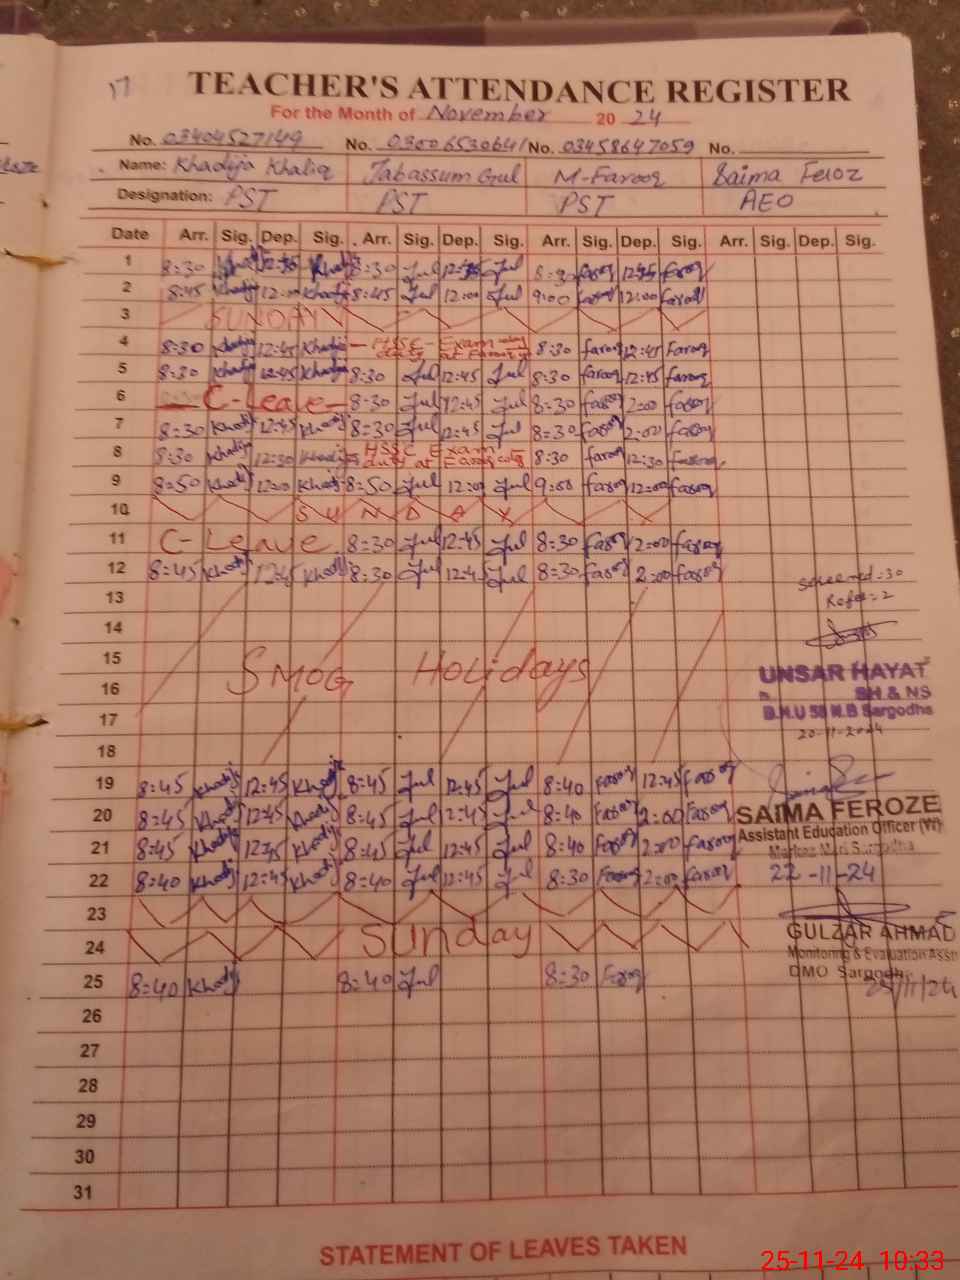 17
TEACHER'S ATTENDANCE REGISTER
For the Month of November 20 24
No. 03404527149 No. 03006530641 No. 03458647059 No.
Name: Khadija Khaliq Tabassum Gul M-Farooq Saima Feroz
Designation: PST PST PST AEO
Date Arr. Sig. Dep. Sig. Arr. Sig. Dep. Sig. Arr. Sig. Dep. Sig. Arr. Sig. Dep. Sig.
1 8:30 Khadij 12:45 Khadij 8:30 Gul 12:45 Gul 8:30 farooq 12:45 farooq
2 8:45 Khadij 12:00 Khadij 8:45 Gul 12:00 Gul 9:00 farooq 12:00 farooq
3 SUNDAY
4 8:30 Khadija 12:45 Khadija HSSC-Exam duty at Farooqa 8:30 farooq 12:45 Farooq
5 8:30 Khadija 12:45 Khadija 8:30 Gul 12:45 Gul 8:30 farooq 12:45 farooq
6 C-Leave 8:30 Gul 12:45 Gul 8:30 farooq 2:00 farooq
7 8:30 Khadij 12:45 Khadij 8:30 Gul 12:45 Gul 8:30 farooq 2:00 farooq
8 8:30 Khadij 12:30 Khadij HSSC Exam duty at Farooqa 8:30 farooq 12:30 farooq
9 8:50 Khadij 12:00 Khadij 8:50 Gul 12:00 Gul 9:00 farooq 12:00 farooq
10 SUNDAY
11 C-Leave 8:30 Gul 12:45 Gul 8:30 farooq 2:00 farooq
12 8:45 Khadij 12:45 Khadij 8:30 Gul 12:45 Gul 8:30 farooq 2:00 farooq
Screened=30
13
Refer=2
14
15 SMOG Holidays
UNSAR HAYAT
16
SH & NS
17
B.H.U 58 N.B Sargodha
20-11-2024
18
19 8:45 Khadij 12:45 Khadij 8:45 Gul 12:45 Gul 8:40 farooq 12:45 farooq
20 8:45 Khadij 12:45 Khadij 8:45 Gul 12:45 Gul 8:40 Farooq 2:00 Farooq
SAIMA FEROZE
Assistant Education Officer (W)
21 8:45 Khadija 12:45 Khadij 8:45 Gul 12:45 Gul 8:40 Farooq 2:00 Farooq
22 8:40 Khadij 12:45 Khadij 8:40 Gul 12:45 Gul 8:30 Farooq 2:00 farooq
22-11-24
23
24 Sunday
GULZAR AHMAD
Monitoring & Evaluation Asstt
DMO Sargodha
25 8:40 Khadij 8:40 Gul 8:30 Farooq
25/11/24
26
27
28
29
30
31
STATEMENT OF LEAVES TAKEN
25-11-24 10:33